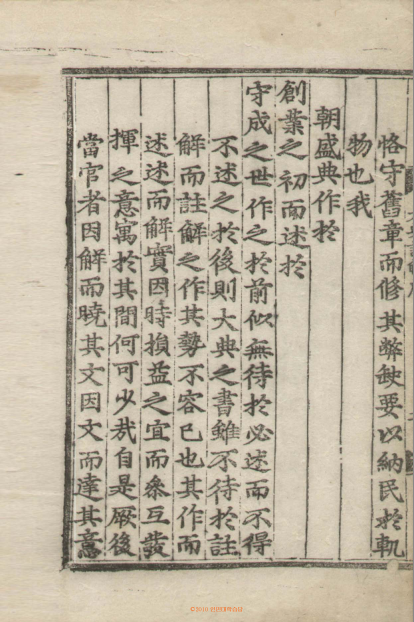 恪守舊章而修其弊缺要以納民於軌
物也我
朝盛典作於
創業之初而述於
守成之世作之於前似無待於必述而不得
不述之於後則大典之書雖不待於註
解而註解之作其勢不容已也其作而
述述而解實因時損益之宜而叅互發
揮之意寓於其間何可少㢤自是厥後
當官者因解而曉其文因文而達其意